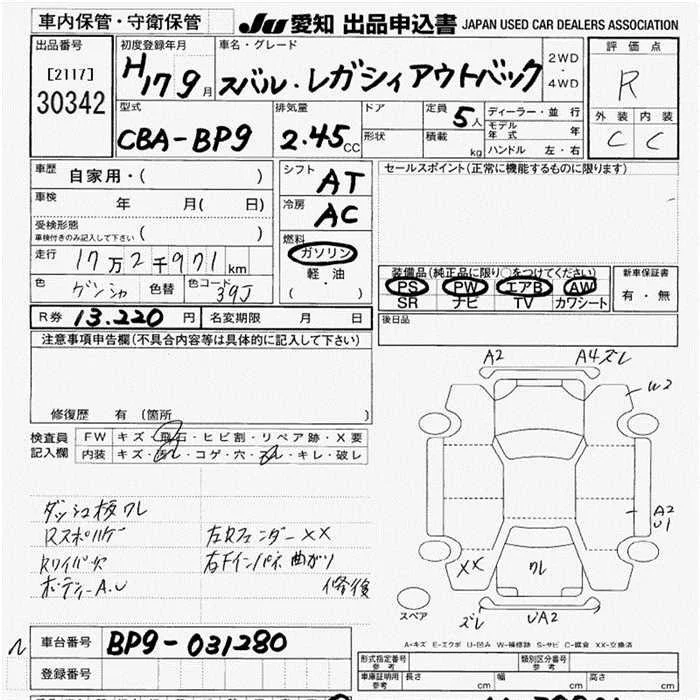 車内保管・守衛保管
JU 愛知 出品申込書 JAPAN USED CAR DEALERS ASSOCIATION
出品番号
[2117]
30342
初度登録年月
H17 9月
車名・グレード
スバル・レガシィアウトバック
2WD
・
4WD
評価点
R
外装 内装
C C
型式
CBA-BP9
排気量
2.45cc
ドア
形状
定員
5人
積載 kg
ディーラー・並行
モデル年式 年
ハンドル 左・右
車歴
自家用・( )
車検 年 月( 日)
受検形態
車検付きのみ記入して下さい ( )
走行 17万2千971km
色 ゲンシャ 色替 色コード 39J
シフト AT
冷房 AC
燃料
ガソリン
軽・油
( )
セールスポイント(正常に機能するものに限ります)
装備品(純正品に限り○をつけてください)
PS PW エアB AW
SR ナビ TV カワシート
新車保証書
有・無
R券 13.220円 名変期限 月 日
後日品
注意事項申告欄(不具合内容等は具体的に記入して下さい)
修復歴 有(箇所 )
検査員記入欄
FW キズ・飛石・ヒビ割・リペア跡・X要
内装 キズ・汚レ・コゲ・穴・スレ・キレ・破レ
ダッシュ板ワレ
Rスポ
Rワイパー欠
ボディーA.U
左Rフェンダー××
右Fインパネ曲がり
修復
A2 A4 ズレ
W2
A2
U1
××
ワレ
スペア
ズレ UA2
A-キズ E-エクボ U-凹み W-補修跡 S-サビ C-腐食 XX-交換済
車台番号 BP9-031280
登録番号
形式指定番号 参考
類別区分番号 参考
車庫証明用 参考 長さ cm 幅 cm 高さ cm